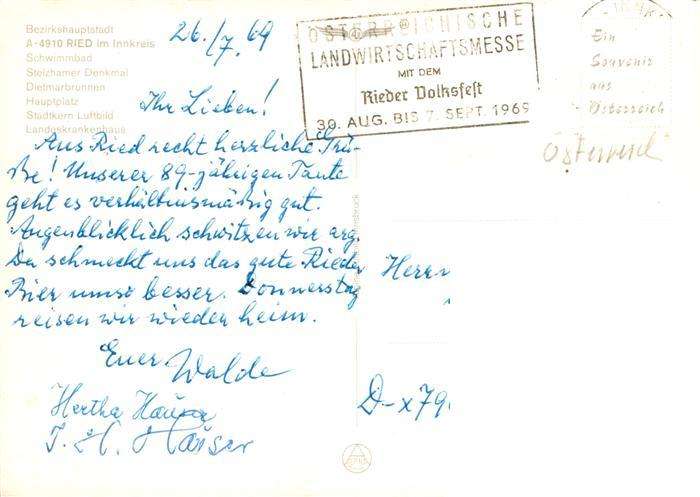 Bezirkshauptstadt
A-4910 RIED im Innkreis
Schwimmbad
Stelzhamer Denkmal
Dietmarbrunnen
Hauptplatz
Stadtkern Luftbild
Landeskrankenhaus
26./7. 69
ÖSTERREICHISCHE
LANDWIRTSCHAFTSMESSE
MIT DEM
Rieder Volksfest
30. AUG. BIS 7. SEPT. 1969
Ein
Souvenir
aus
Österreich
Österreich
Ihr Lieben!
Aus Ried recht herzliche Grü-
ße! Unserer 89-jährigen Tante
geht es verhältnismäßig gut.
Augenblicklich schwitzen wir arg.
Da schmeckt uns das gute Rieder
Bier umso besser. Donnerstag
reisen wir wieder heim.
Euer Walde
Hertha Hauser
J. H. Häuser
Herrn
D-x79